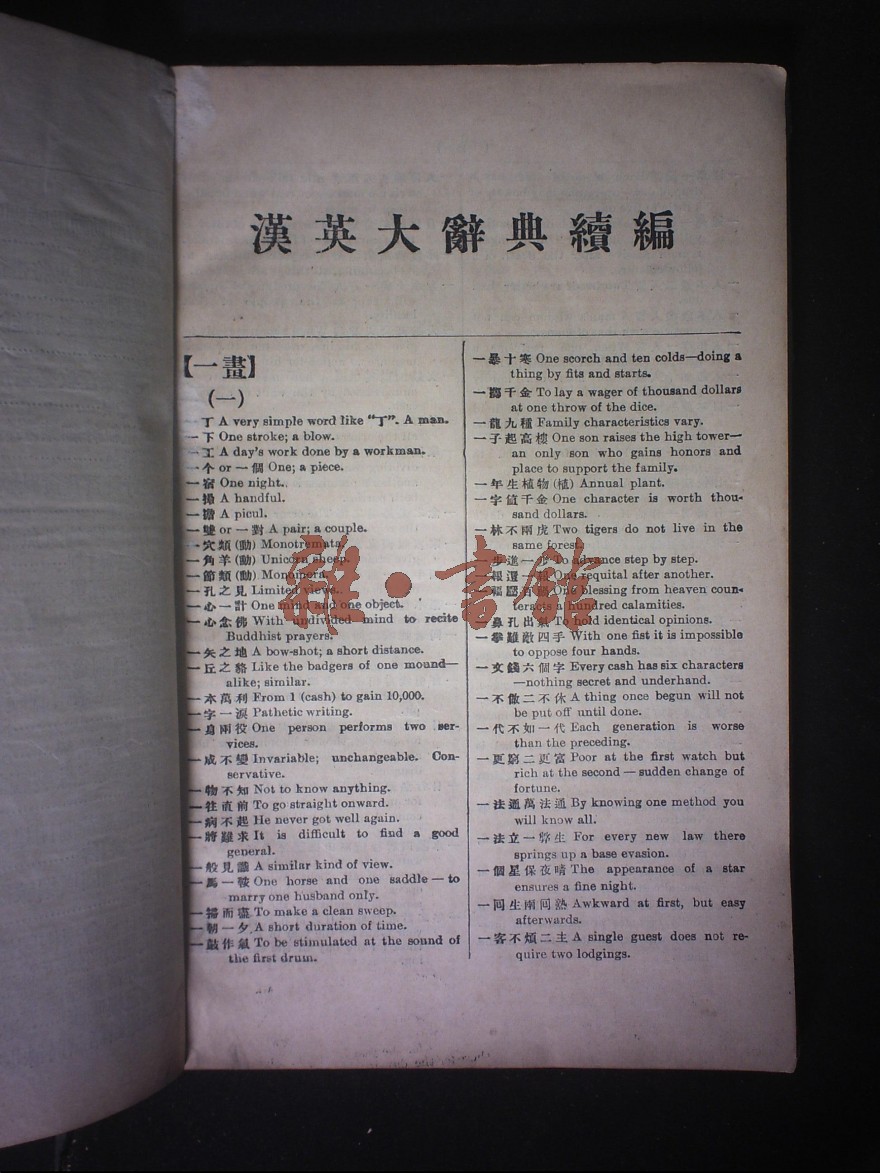 漢英大辭典續編
【一畫】
(一)
一丁 A very simple word like "丁". A man.
一下 One stroke; a blow.
一工 A day's work done by a workman.
一个 or 一個 One; a piece.
一宿 One night.
一撮 A handful.
一擔 A picul.
一雙 or 一對 A pair; a couple.
一穴類(動) Monotremata.
一角羊(動) Unicorn sheep.
一節類(動)
一孔之見 Limited views.
一心一計 One mind and one object.
一心念佛 With undivided mind to recite
Buddhist prayers.
一矢之地 A bow-shot; a short distance.
一丘之貉 Like the badgers of one mound—
alike; similar.
一本萬利 From 1 (cash) to gain 10,000.
一字一淚 Pathetic writing.
一身兩役 One person performs two ser-
vices.
一成不變 Invariable; unchangeable. Con-
servative.
一物不知 Not to know anything.
一往直前 To go straight onward.
一病不起 He never got well again.
一將難求 It is difficult to find a good
general.
一般見識 A similar kind of view.
一馬一鞍 One horse and one saddle—to
marry one husband only.
一掃而盡 To make a clean sweep.
一朝一夕 A short duration of time.
一鼓作氣 To be stimulated at the sound of
the first drum.
一暴十寒 One scorch and ten colds—doing a
thing by fits and starts.
一擲千金 To lay a wager of thousand dollars
at one throw of the dice.
一龍九種 Family characteristics vary.
一子起高樓 One son raises the high tower—
an only son who gains honors and
place to support the family.
一年生植物(植) Annual plant.
一字值千金 One character is worth thou-
sand dollars.
一林不兩虎 Two tigers do not live in the
same forest.
一步進一步 To advance step by step.
一報還一報 One requital after another.
一福壓百禍 One blessing from heaven coun-
teracts a hundred calamities.
一鼻孔出氣 To hold identical opinions.
一拳難敵四手 With one fist it is impossible
to oppose four hands.
一文錢六個字 Every cash has six characters
—nothing secret and underhand.
一不做二不休 A thing once begun will not
be put off until done.
一代不如一代 Each generation is worse
than the preceding.
一更窮二更富 Poor at the first watch but
rich at the second—sudden change of
fortune.
一法通萬法通 By knowing one method you
will know all.
一法立一弊生 For every new law there
springs up a base evasion.
一個星保夜晴 The appearance of a star
ensures a fine night.
一回生兩回熟 Awkward at first, but easy
afterwards.
一客不煩二主 A single guest does not re-
quire two lodgings.
雜·書館